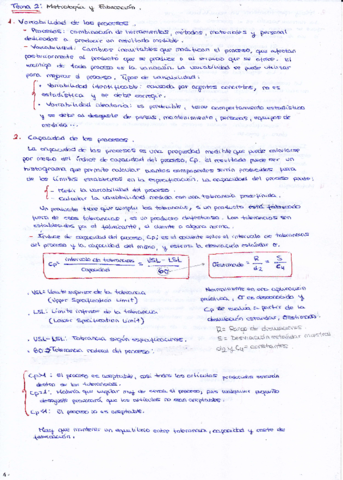 Tema 2: Metrología y
1. Variabilidad de los procesos.
- Procesos: combinación de herramientas, métodos, materiales y personal
dedicados a producir un resultado medible.
- Variabilidad: Cambios inevitables que modifican el proceso, que afectan
posteriormente al producto que se produce o al servicio que se ofrece. El
enemigo de todo proceso es la variación. La variabilidad se puede utilizar
para mejorar el proceso. Tipos de variabilidad:
• Variabilidad identificable: causada por agentes concretos, no es
estadística y se debe corregir.
• Variabilidad aleatoria: es predecible, tiene comportamiento estadístico
y se debe al desgaste de piezas, mantenimiento, personas, equipos de
medida...
2. Capacidad de los procesos.
La capacidad de los procesos es una propiedad medible que puede calcularse
por medio del índice de capacidad del proceso, Cp. El resultado puede ser un
histograma que permite calcular cuántos componentes serán producidos fuera
de los límites establecidos en la especificación. La capacidad del proceso puede:
- Medir la variabilidad del proceso.
- Calcular la variabilidad medida con una tolerancia prefijada.
Un producto tiene que cumplir las tolerancias, si un producto está fabricado
fuera de esas tolerancias, es un producto defectuoso. Las tolerancias son
establecidas por el fabricante, el cliente o alguna norma.
- Índice de capacidad del proceso, Cp: es el cociente entre el intervalo de tolerancias
del proceso y la capacidad del mismo, y siendo la desviación estándar σ.
Cp = Intervalo de tolerancia / Capacidad = USL - LSL / 6σ
σestimado = R / d2 = S / C4
· USL: Límite superior de la tolerancia
(Upper Specification Limit)
· LSL: Límite inferior de la tolerancia
(Lower Specification Limit)
· USL-LSL: Tolerancia según especificaciones.
· 6σ: Tolerancia natural del proceso.
Normalmente en una aplicación
práctica, σ es desconocida y
Cp se evalúa a partir de la
desviación estándar, σestimado.
R = Rango de
S = Desviación estándar muestral
d2 y C4 = constantes
Cp>1: El proceso es aceptable, casi todos los artículos producidos estarán
dentro de las tolerancias.
Cp=1: Habría que vigilar muy de cerca el proceso, pues cualquier pequeño
desajuste provocará que los artículos no sean aceptables.
Cp<1: El proceso no es aceptable.
Hay que mantener un equilibrio entre tolerancia, capacidad y coste de
fabricación.